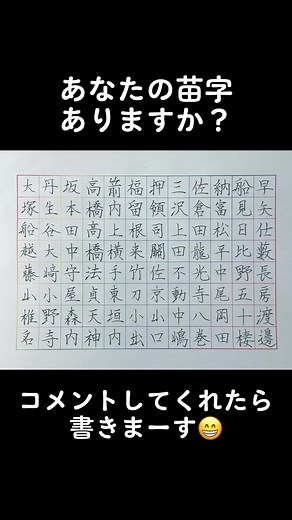 あなたの苗字
ありますか？
早矢仕藪長房渡邊
船見日比野五十棲
納富松平中尾岡田
佐倉田龍光寺八巻
三沢上田不動中嶋
押領司關佐京山口
福留根来竹刀小出
箭内上横手東垣内
高橋高橋法貞天神
坂本田中守屋森内
丹生谷大﨑小野寺
大塚船越藤山椎名
コメントしてくれたら
書きまーす😁